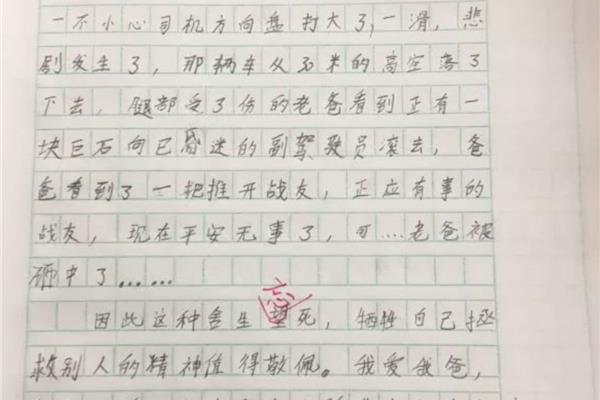 一不小心司机方向盘打大了,一滑,悲
剧发生了,那辆车从30米的高空落了
下去,腿部受了伤的老爸看到正有一
块巨石向已昏迷的副驾驶员滚去,爸
爸看到了一把推开战友,正应有事的
战友,现在平安无事了,可…老爸被
砸中了……
忘
因此这种舍生望死,牺牲自己拯
救别人的精神值得敬佩。我爱我爸,